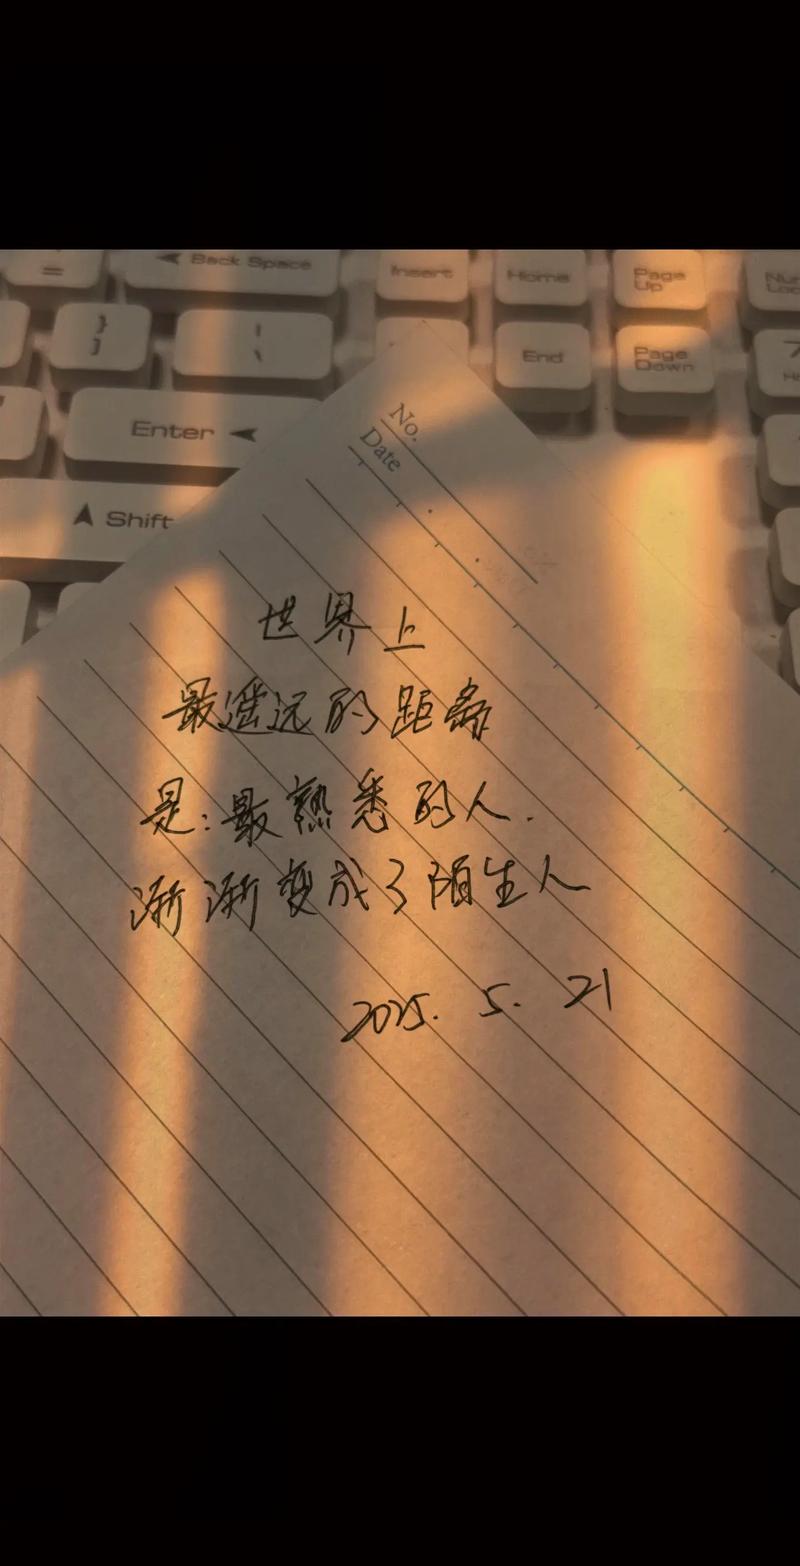 =
Back Space
Insert
Home
Page Up
Num Loc
}
]
¦
\
End
Page Down
7
H
Enter
Shift
No.
Date
世界上
最遥远的距离
是:最熟悉的人.
渐渐变成了陌生人
2025. 5. 21